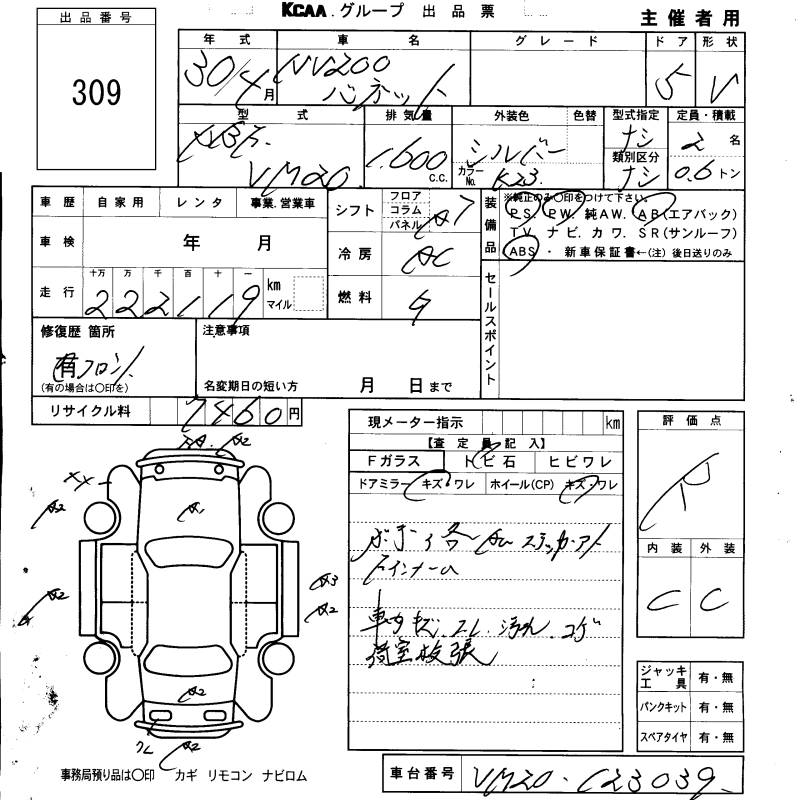 KCAA グループ 出品票
主催者用
出品番号
309
年式 車名 グレード ドア 形状
30/4月 NV200 バネット 5 V
型式 排気量 外装色 色替 型式指定 定員・積載
VM20 1,600 c.c. シルバー ナシ 2名
カラーNo. K23 類別区分 ナシ 0.6トン
車歴 自家用 レンタ 事業.営業車
シフト フロア コラム パネル A7
装備品 ※純正のみ〇印をつけて下さい。
P.S. P.W. 純A.W. A.B(エアバック)
T.V. ナビ. カワ. S.R(サンルーフ)
ABS ・ 新車保証書←(注) 後日送りのみ
車検 年 月
冷房 AC
走行 十万 万 千 百 十 一
222119 km マイル
燃料 G
セールスポイント
修復歴 箇所 注意事項
有 フロント
(有の場合は〇印を) 名変期日の短い方 月 日まで
リサイクル料 7460円
現メーター指示 km
【査定員記入】
Fガラス トビ石 ヒビワレ
ドアミラー キズ・ワレ ホイール(CP) キズ・ワレ
評価点
R
内装 外装
C C
A2
XX
A2
A1
A2
A3
A2
A2
A2
荷室板張
ジャッキ工具 有・無
パンクキット 有・無
スペアタイヤ 有・無
事務局預り品は〇印 カギ リモコン ナビロム
車台番号 VM20-C23039